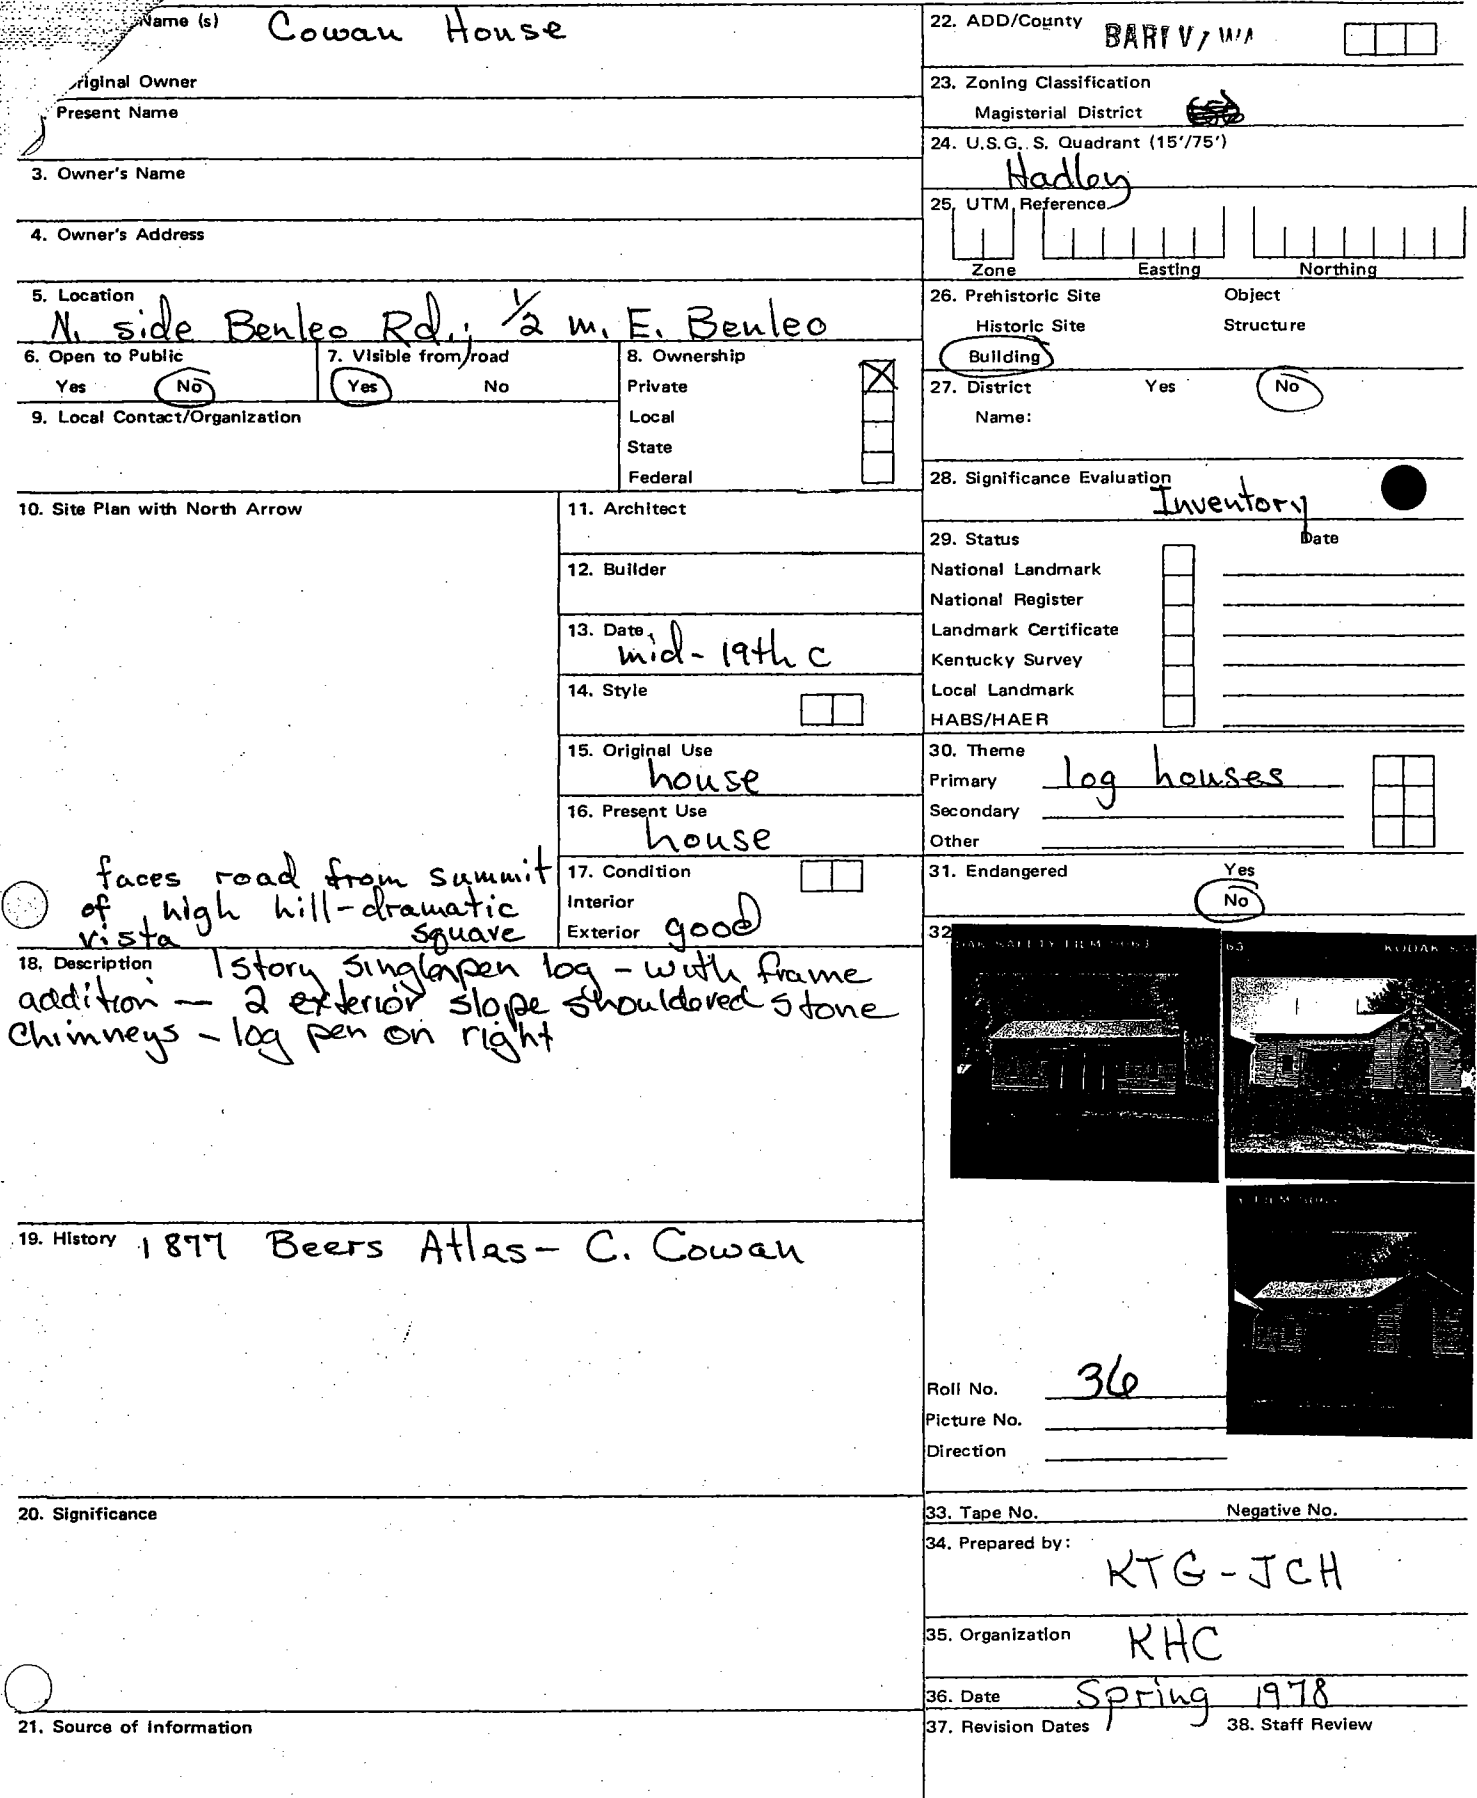 Name (s) Cowan House
Original Owner
Present Name
3. Owner's Name
4. Owner's Address
5. Location
N. side Benleo Rd.; 1/2 m. E. Benleo
6. Open to Public
Yes No
7. Visible from road
Yes No
8. Ownership
Private
Local
State
Federal
9. Local Contact/Organization
10. Site Plan with North Arrow
faces road from summit
of high hill-dramatic
vista
square
11. Architect
12. Builder
13. Date
mid-19th C
14. Style
15. Original Use
house
16. Present Use
house
17. Condition
Interior
Exterior good
18. Description 1 story single pen log - with frame
addition — 2 exterior slope shouldered stone
Chimneys - log pen on right
19. History 1877 Beers Atlas- C. Cowan
20. Significance
21. Source of Information
22. ADD/County
23. Zoning Classification
Magisterial District
24. U.S.G.S. Quadrant (15'/75')
Hadley
25. UTM Reference
Zone Easting Northing
26. Prehistoric Site Object
Historic Site Structure
Building
27. District Yes No
Name:
28. Significance Evaluation
Inventory
29. Status Date
National Landmark
National Register
Landmark Certificate
Kentucky Survey
Local Landmark
HABS/HAER
30. Theme
Primary log houses
Secondary
Other
31. Endangered Yes
No
32
SAFETY FILM 5063
63 KODAK
FILM 5063
Roll No. 36
Picture No.
Direction
33. Tape No. Negative No.
34. Prepared by:
KTG-JCH
35. Organization KHC
36. Date Spring 1978
37. Revision Dates 38. Staff Review